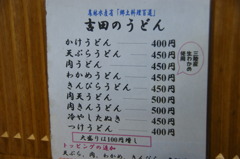 農林水産省「郷土料理百選」
吉田のうどん
かけうどん 400円
天ぷらうどん 450円
肉うどん 450円
わかめうどん 450円
きんぴらうどん 450円
肉天うどん 500円
肉きんうどん 500円
冷やしたぬき 500円
つけうどん 400円
大盛りは100円増し
トッピングの追加
天ぷら、肉、わかめ、きんぴら
三陸産
生わかめ
使用